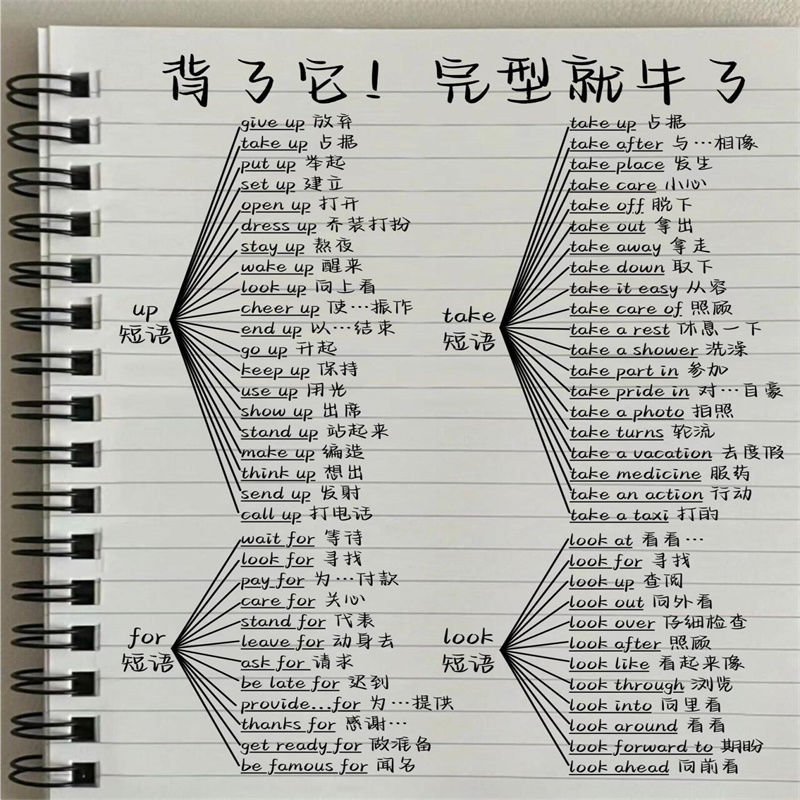 背了它！完型就牛了
give up 放弃
take up 占据
put up 举起
set up 建立
open up 打开
dress up 乔装打扮
stay up 熬夜
wake up 醒来
look up 向上看
cheer up 使…振作
end up 以…结束
go up 升起
keep up 保持
use up 用光
show up 出席
stand up 站起来
make up 编造
think up 想出
send up 发射
call up 打电话
up
短语
take up 占据
take after 与…相像
take place 发生
take care 小心
take off 脱下
take out 拿出
take away 拿走
take down 取下
take it easy 从容
take care of 照顾
take a rest 休息一下
take a shower 洗澡
take part in 参加
take pride in 对…自豪
take a photo 拍照
take turns 轮流
take a vacation 去度假
take medicine 服药
take an action 行动
take a taxi 打的
take
短语
wait for 等待
look for 寻找
pay for 为…付款
care for 关心
stand for 代表
leave for 动身去
ask for 请求
be late for 迟到
provide...for 为…提供
thanks for 感谢…
get ready for 做准备
be famous for 闻名
for
短语
look at 看看…
look for 寻找
look up 查阅
look out 向外看
look over 仔细检查
look after 照顾
look like 看起来像
look through 浏览
look into 向里看
look around 看看
look forward to 期盼
look ahead 向前看
look
短语